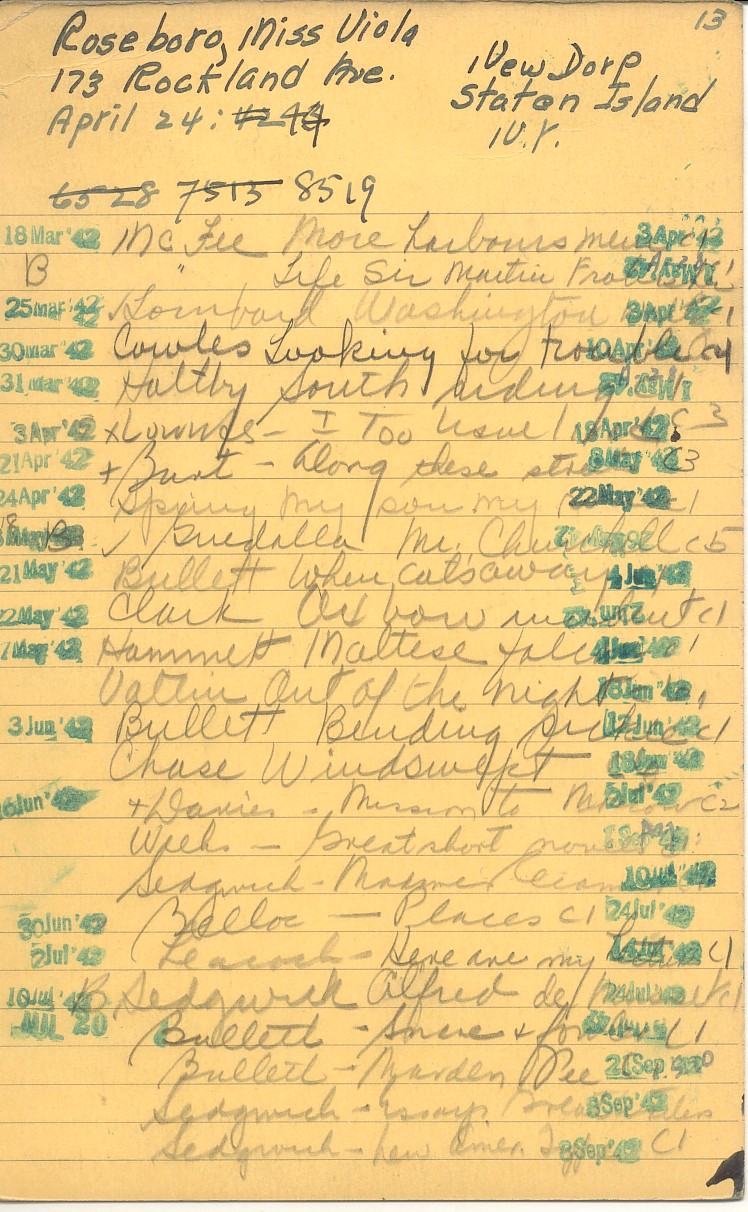 13
Roseboro, Miss Viola
173 Rockland Ave.
New Dorp
Staten Island
N.Y.
April 24:
6528 7513 8519
18 Mar '42 McFee More harbours mem 3 Apr '42 c1
B " Life Sir Martin Fro
25 Mar '42 Lombard Washington 3 Apr '42 1
30 Mar '42 Cowles Looking for trouble 10 Apr '42 c4
31 Mar '42 Holtby South riding
3 Apr '42 x Lownds - I Too 18 Apr '42 3
21 Apr '42 + Burt - Along these stre 8 May '42 c3
24 Apr '42 my son my 22 May '42 c1
B ✓ Guedalla Mr. Churchill c5
21 May '42 Bullett When cat's away 4 Jun '42
22 May '42 Clark Ox bow c1
7 May '42 Hammett Maltese falc 1
Valtin Out of the night 18 Jun '42 1
3 Jun '42 Bullett Bending 17 Jun '42 c1
Chase Windswept 18 Jun '42
16 Jun '42 + Davies - Mission to Mo 2 Jul '42 c2
Weeks - Great short nove
Sedgwick - Madame 10 Jul '42
30 Jun '42 Belloc - Places c1 24 Jul '42
2 Jul '42 Leacock - Here are my 14 Jul '42 c1
10 Jul '42 B Sedgwick Alfred de Musset 24 Jul '42 c1
JUL 20 Bullett - Snare + fow c1
Bullett - Marden Fee 21 Sep '42
Sedgwick - essays 8 Sep '42
Sedgwick - new Amer. 8 Sep '42 c1